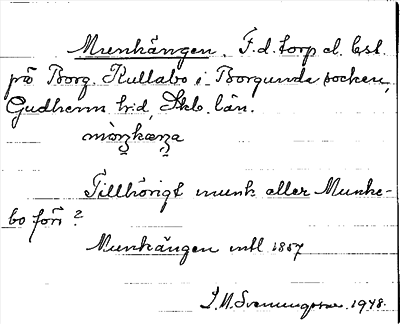 Munkängen. F.d. torp el. bst.
på Borg. Kullabo i Borgunda socken,
Gudhems hd, Skb. län.
Tillhörigt munk eller Munke-
bo förr?
Munkängen mtl 1857
1948.